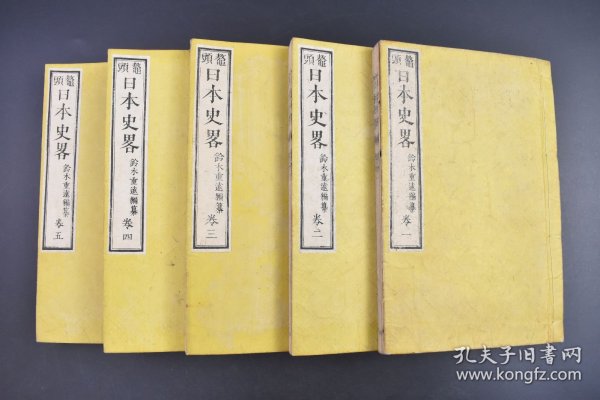 鼇頭
日本史畧
鈴木重遠編纂
卷一
鼇頭
日本史畧
鈴木重遠編纂
卷二
鼇頭
日本史畧
鈴木重遠編纂
卷三
鼇頭
日本史畧
鈴木重遠編纂
卷四
鼇頭
日本史畧
鈴木重遠編纂
卷五
孔夫子旧书网
www.kongfz.com